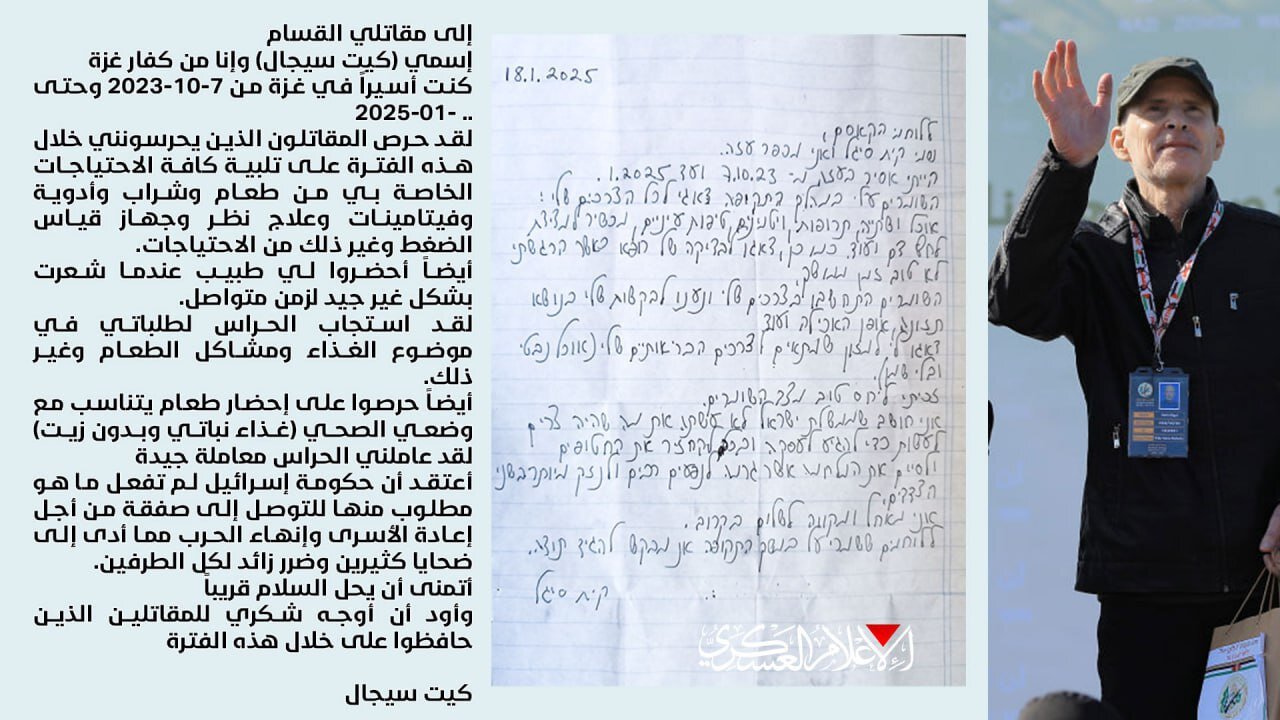 إلى مقاتلي القسام
إسمي (كيت سيجال) وإنا من كفار غزة
كنت أسيراً في غزة من 7-10-2023 وحتى
.. -01-2025
لقد حرص المقاتلون الذين يحرسونني خلال
هذه الفترة على تلبية كافة الاحتياجات
الخاصة بي من طعام وشراب وأدوية
وفيتامينات وعلاج نظر وجهاز قياس
الضغط وغير ذلك من الاحتياجات.
أيضاً أحضروا لي طبيب عندما شعرت
بشكل غير جيد لزمن متواصل.
لقد استجاب الحراس لطلباتي في
موضوع الغذاء ومشاكل الطعام وغير
ذلك.
أيضاً حرصوا على إحضار طعام يتناسب مع
وضعي الصحي (غذاء نباتي وبدون زيت)
لقد عاملني الحراس معاملة جيدة
أعتقد أن حكومة إسرائيل لم تفعل ما هو
مطلوب منها للتوصل إلى صفقة من أجل
إعادة الأسرى وإنهاء الحرب مما أدى إلى
ضحايا كثيرين وضرر زائد لكل الطرفين.
أتمنى أن يحل السلام قريباً
وأود أن أوجه شكري للمقاتلين الذين
حافظوا على خلال هذه الفترة
كيت سيجال
18.1.2025
ללוחמי הקאסם,
שמי קית סיגל ואני מכפר עזה.
הייתי אסיר בעזה מ: 7.10.23 ועד .1.2025
השומרים עלי במהלך התקופה דאגו לכל הצרכים שלי:
אוכל ושתייה, תרופות, ויטמינים, טיפות עיניים, מכשיר למדידת
לחץ דם ועוד. כמו כן, דאגו לבדיקה של רופא כאשר הרגשתי
לא טוב זמן ממושך.
השומרים התחשבו בצרכים שלי ונענו לבקשות שלי בנושא
תזונה, אופן האכילה ועוד
דאגו לי למזון שמתאים לצרכים הבריאותיים שלי (אוכל נבטי
ובלי שמן).
זכיתי ליחס טוב מצד השומרים.
אני חושב שממשלת ישראל לא עשתה את מה שהיה צריך
לעשות כדי להגיע לעסקה ובכך להחזיר את החטופים
ולסיים את המלחמה אשר גרמה לנפגעים רבים ולנזק מיותר בשני
הצדדים.
אני מאחל ומקווה לשלום בקרוב.
ללוחמים ששמרו עלי במשך התקופה אני מבקש להגיד תודה.
קית סיגל
الإعلام العسكري